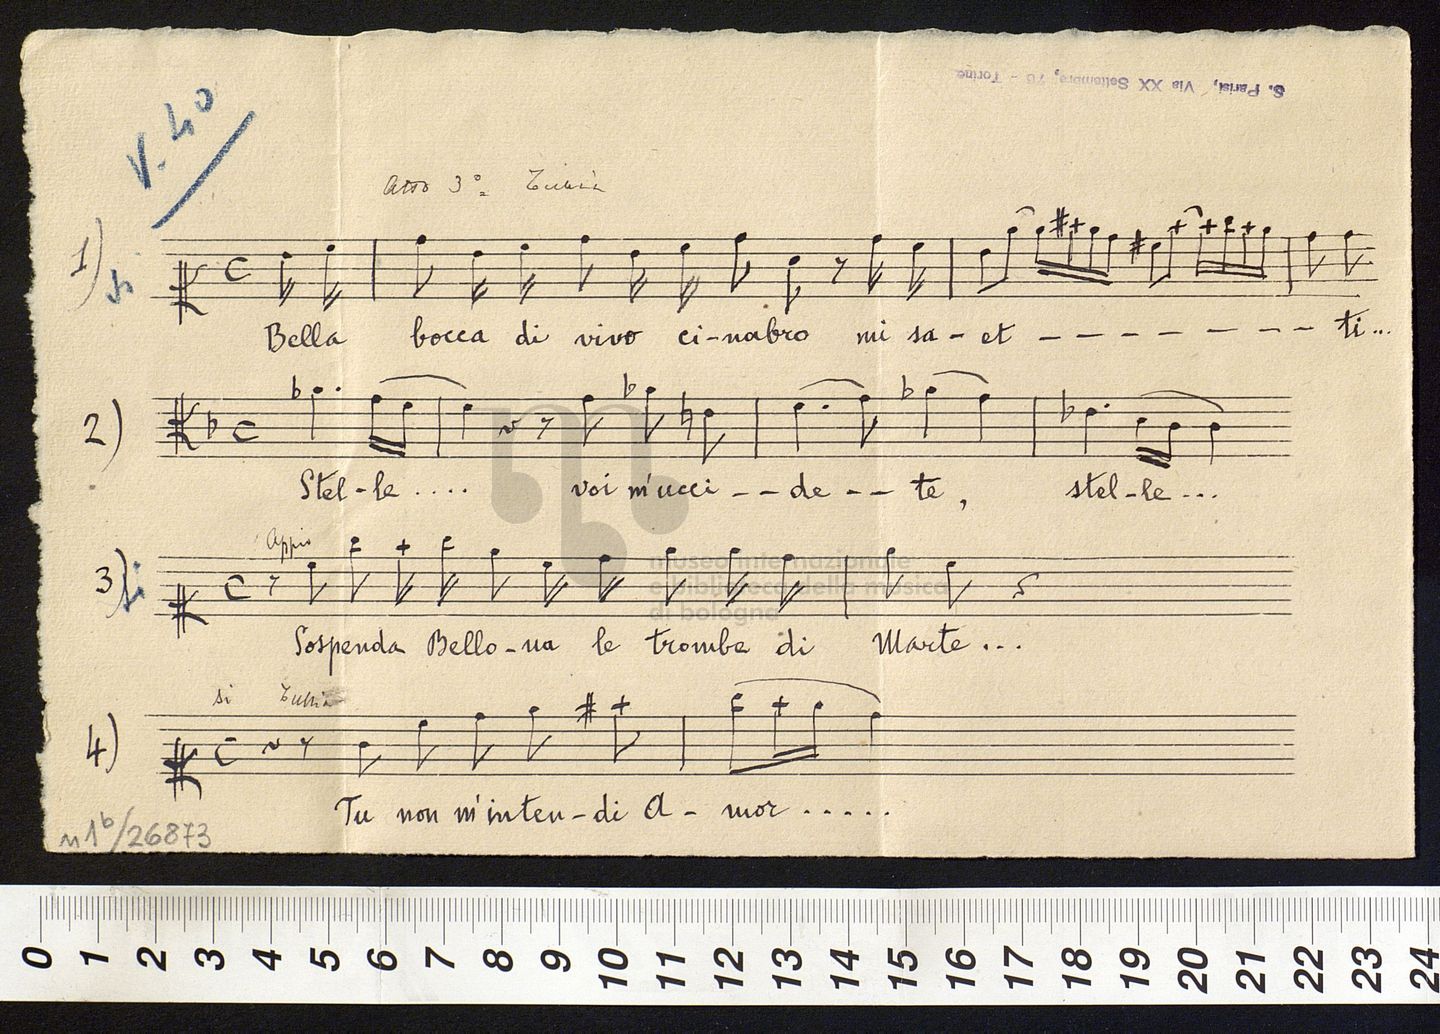 S. Parisi, Via XX Settembre, 76 - Torino
V. 40
Atto 3º
1) si
Bella bocca di vivo ci-nabro mi sa-et - - - - - - - - - ti...
2)
Stel-le .... voi m'ucci - - de - - te, stel-le ...
3) si Appio
Sospenda Bello-na le trombe di Marte ...
si
4)
Tu non m'inten-di A - mor .....
n1b/26873
museo internazionale
e biblioteca della musica
di bologna
0 1 2 3 4 5 6 7 8 9 10 11 12 13 14 15 16 17 18 19 20 21 22 23 24